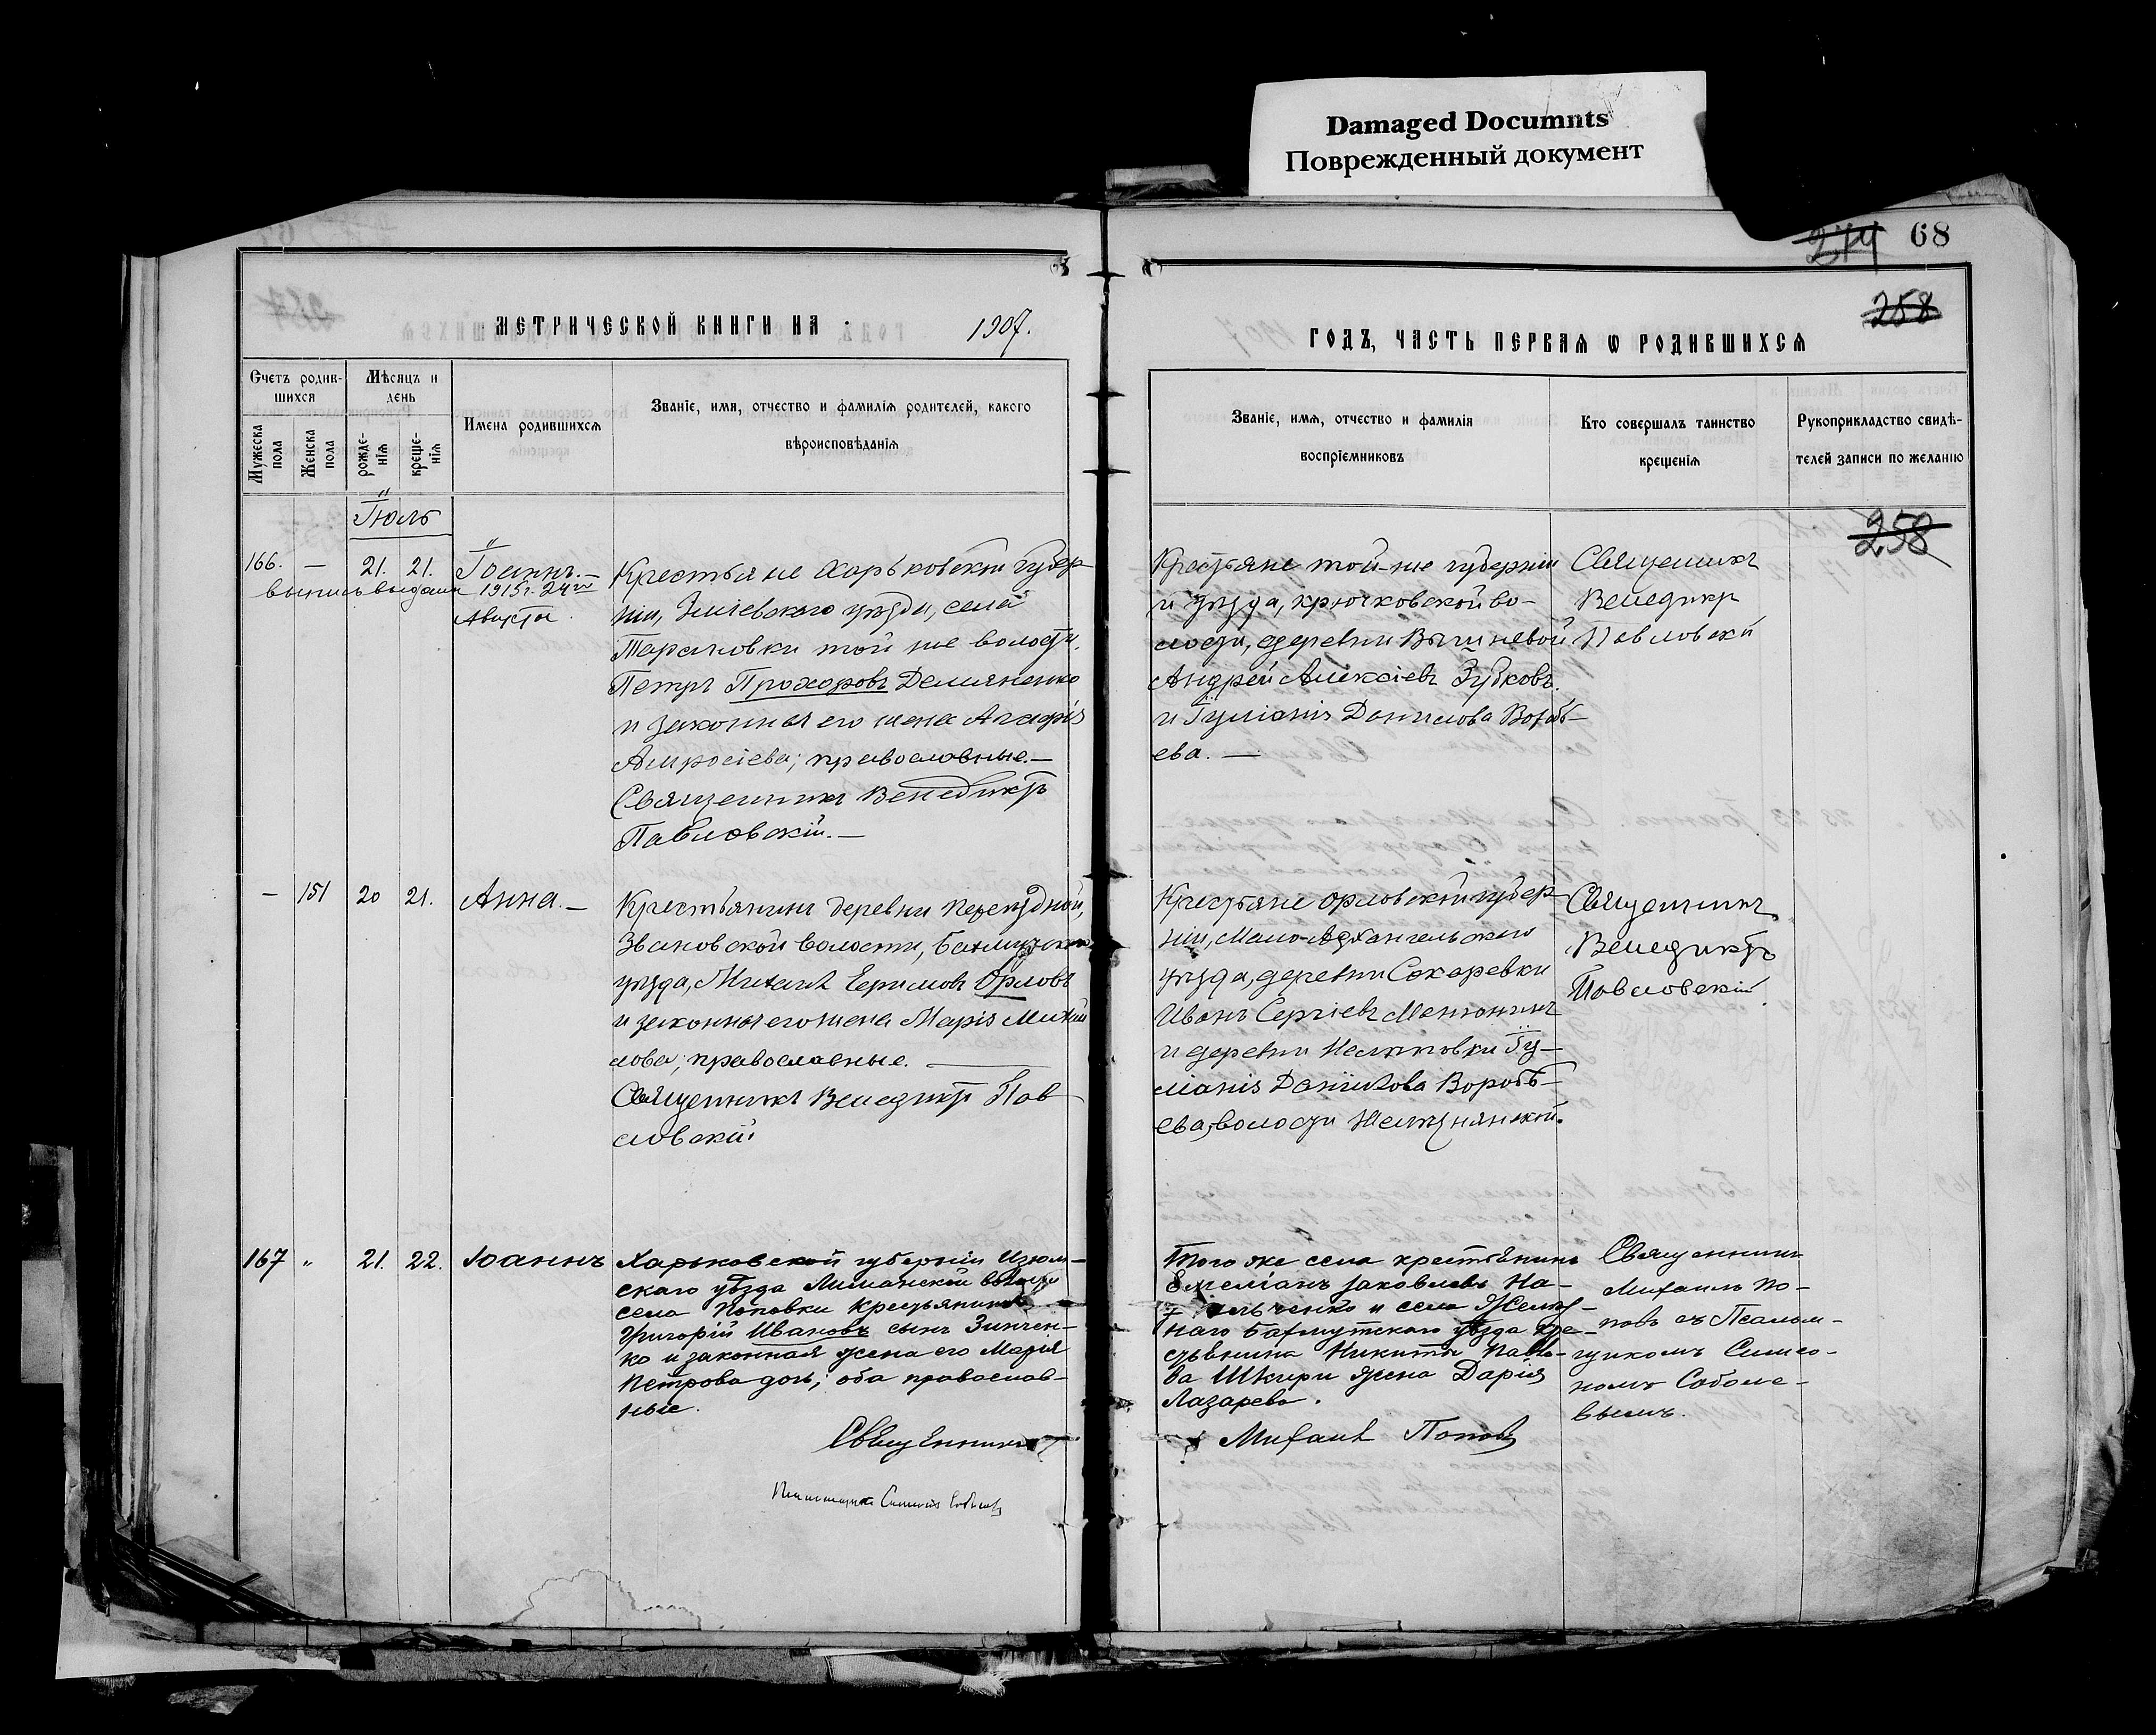 Damaged Documnts
Поврежденный документ
274 68
258
МЕТРИЧЕСКОЙ КНИГИ НА 1907.
ГОДЪ, ЧАСТЬ ПЕРВАЯ Ѡ РОДИВШИХСЯ
Счетъ родившихся
Мѣсяцъ и день
Мужеска пола
Женска пола
рожденія
крещенія
Имена родившихся
Званіе, имя, отчество и фамилія родителей, какого
вѣроисповѣданія
Званіе, имя, отчество и фамилія
воспріемниковъ
Кто совершалъ таинство
крещенія
Рукоприкладство свидѣ-
телей записи по желанію
258
Іюль
166. — 21. 21. Іоаннъ.—
выпись выдана 1915г. 24го
Августа
Крестьяне Харьковской губер-
ніи, Зміевского уѣзда, села
Тарановки той же волости,
Петръ Прохоровъ Демяненко
и законная его жена Агафія
Амвросіева; православные.—
Священникъ Венедиктъ
Павловскій.—
Крестьяне той-же губерніи
и уѣзда, Крючковской во-
лости, деревни
Андрей Алексіевъ Зубковъ
и Іуліанія Данилова Воробь-
ева.—
Священникъ
Венедиктъ
Павловскій
— 151 20 21. Анна.—
Крестьянинъ деревни Переѣздной,
Звановской волости, Бахмутского
уѣзда, Михаилъ Ефимовъ Орловъ
и законная его жена Марія Михаи
лова; православные.
Священникъ Венедиктъ Пав
ловскій
Крестьяне Орловской губер-
ніи, Мало-Архангельского
уѣзда, деревни Сокоревки
Иванъ Сергіевъ
и деревни Іу-
ліанія Данилова Воробь-
ева, волости
Священникъ
Венедиктъ
Павловскій
167 " 21. 22. Іоаннъ
Харьковской губерніи Изюм-
скаго уѣзда Лиманской волости
села Поповки крестьянинъ
Григорій Ивановъ сынъ Зинчен-
ко и законная жена его Марія
Петрова дочь; оба православ-
ные.
Священникъ
Псаломщикъ Симеонъ Соболевъ
Того же села крестьянинъ
Емеліанъ Іаковлевъ На-
и села Желѣз-
наго Бахмутскаго уѣзда кре-
стьянина Никиты Павло-
ва Шкири жена Дарія
Лазарева.
Михаилъ Поповъ
Священникъ
Михаилъ По-
повъ съ Псалом-
щикомъ Симео-
номъ Соболе-
вымъ.